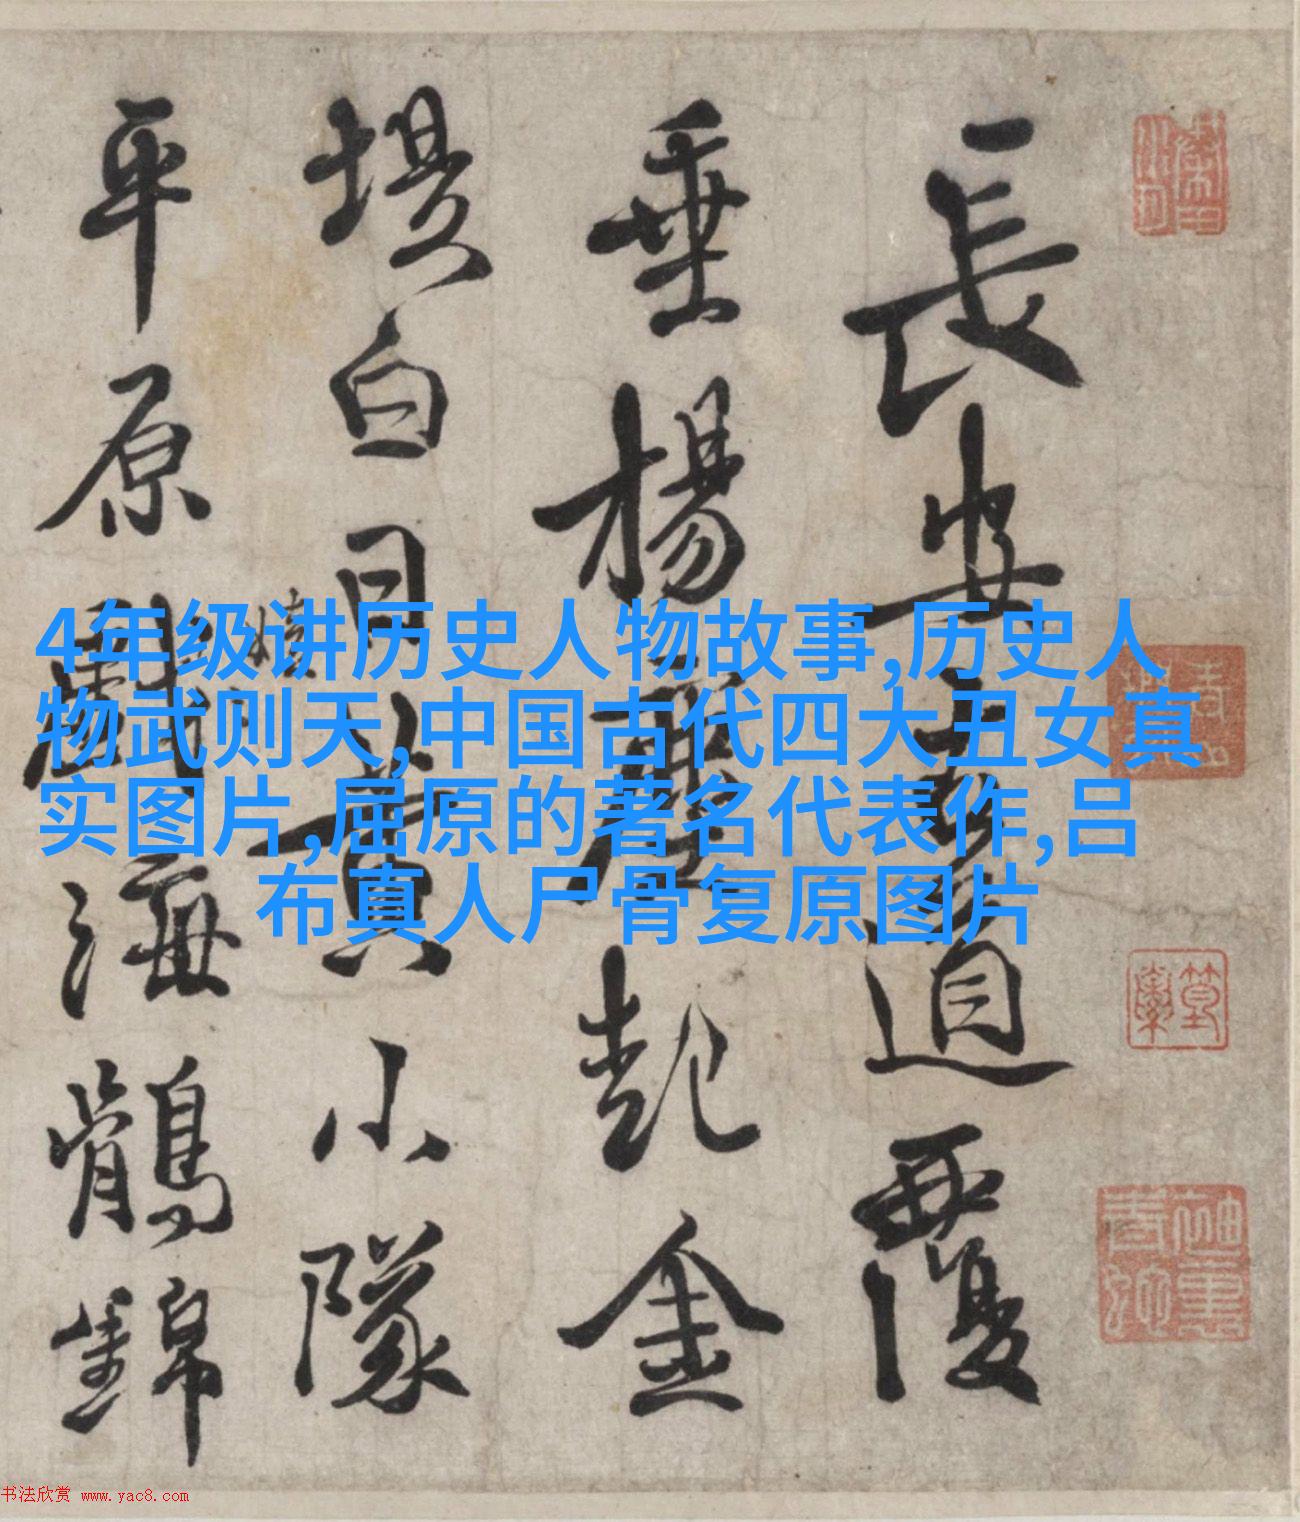 長安道覆
垂楊塵起金
堤白日黃小隊
平原海鶻錦
4年级讲历史人物故事,历史人
物武则天,中国古代四大丑女真
实图片,屈原的著名代表作,吕
布真人尸骨复原图片
书法欣赏 www.yac8.com